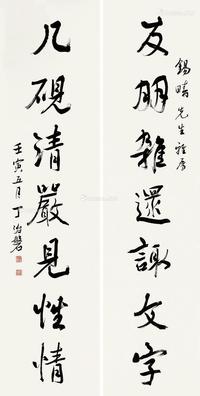 友朋杂還諏文字
錫疇先生雅属
几硯清嚴見性情
壬寅五月丁治磐